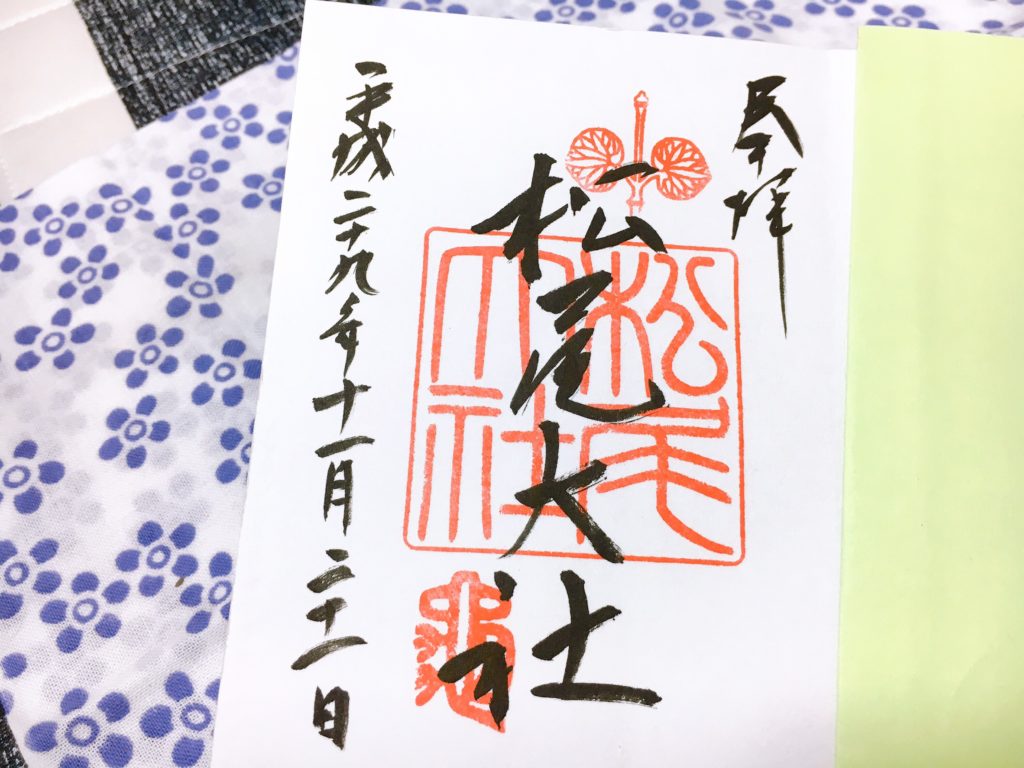 奉拝
松尾大社
平成二十九年十一月二十一日
松尾大社